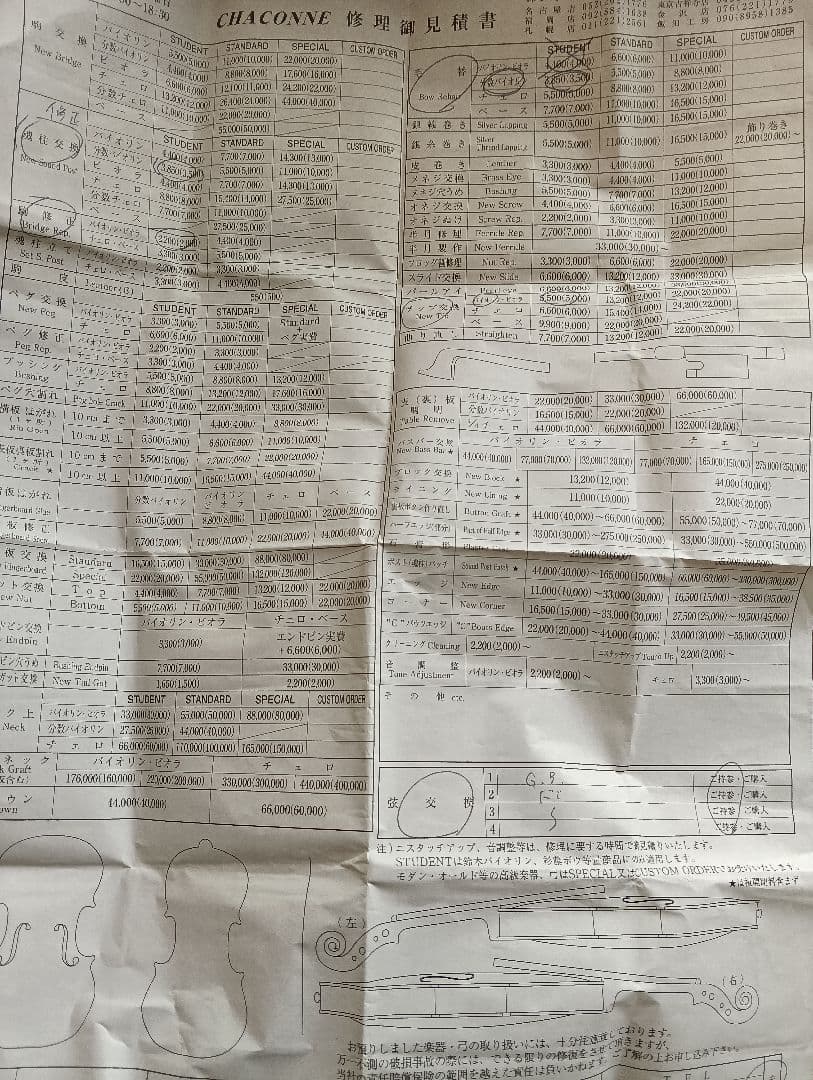 CHACONNE 修理御見積書
STUDENT STANDARD SPECIAL CUSTOM ORDER
駒交換 New Bridge
バイオリン 11,000(10,000) 22,000(20,000)
分数バイオリン 4,400(4,000) 8,800(8,000) 17,600(16,000)
ビオラ 6,600(6,000) 24,200(22,000)
チェロ 13,200(12,000) 26,400(24,000) 44,000(40,000)
分数チェロ 22,000(20,000)
ベース 55,000(50,000)
修正
STUDENT STANDARD SPECIAL CUSTOM ORDER
魂柱交換 New Sound Post
バイオリン 4,400(4,000) 7,700(7,000) 14,300(13,000)
分数バイオリン 3,850(3,500) 5,500(5,000) 11,000(10,000)
ビオラ 4,400(4,000) 7,700(7,000) 14,300(13,000)
チェロ 8,800(8,000) 15,400(14,000) 27,500(25,000)
分数チェロ 7,700(7,000) 11,000(10,000)
ベース 27,500(25,000)
駒修正 Bridge Rep.
バイオリン・ビオラ 2,200(2,000) 4,400(4,000)
チェロ・ベース 3,300(3,000) 5,500(5,000)
魂柱立て Set S. Post
バイオリン・ビオラ 2,200(2,000) 3,300(3,000)
チェロ・ベース 3,300(3,000) 4,400(4,000)
駒皮 Leather 550(500)
STUDENT STANDARD SPECIAL CUSTOM ORDER
ペグ交換 New Peg
バイオリン・ビオラ 3,300(3,000) 5,500(5,000) Standard + ペグ実費
チェロ 6,600(6,000) 11,000(10,000)
ペグ修正 Peg Rep.
バイオリン・ビオラ 2,200(2,000) 3,300(3,000)
チェロ・ベース 3,300(3,000) 4,400(4,000)
ブッシング Bushing
バイオリン・ビオラ 5,500(5,000) 8,800(8,000) 13,200(12,000)
チェロ 8,800(8,000) 13,200(12,000) 17,600(16,000)
ペグ穴割れ Peg hole Crack 11,000(10,000) 22,000(20,000) 33,000(30,000)
10cmまで 3,300(3,000) 4,400(4,000) 8,800(8,000)
10cm以上 5,500(5,000) 6,600(6,000) 11,000(10,000)
10cmまで 5,500(5,000) 7,700(7,000) 22,000(20,000)
10cm以上 11,000(10,000) 16,500(15,000) 44,000(40,000)
分数バイオリン バイオリン ビオラ チェロ ベース
5,500(5,000) 8,800(8,000) 11,000(10,000) 22,000(20,000)
7,700(7,000) 11,000(10,000) 22,000(20,000) 44,000(40,000)
Standard 16,500(15,000) 33,000(30,000) 88,000(80,000)
Special 22,000(20,000) 55,000(50,000) 132,000(120,000)
Top 4,400(4,000) 7,700(7,000) 13,200(12,000) 22,000(20,000)
Bottom 5,500(5,000) 11,000(10,000) 16,500(15,000) 22,000(20,000)
バイオリン・ビオラ チェロ・ベース
3,300(3,000) エンドピン実費 + 6,600(6,000)
Bushing Endpin 7,700(7,000) 33,000(30,000)
New Tail Gut 1,650(1,500) 2,200(2,000)
STUDENT STANDARD SPECIAL CUSTOM ORDER
バイオリン・ビオラ 33,000(30,000) 55,000(50,000) 88,000(80,000)
分数バイオリン 27,500(25,000) 44,000(40,000)
チェロ 66,000(60,000) 110,000(100,000) 165,000(150,000)
バイオリン・ビオラ チェロ
176,000(160,000) 220,000(200,000) 330,000(300,000) 440,000(400,000)
44,000(40,000) 66,000(60,000)
STUDENT STANDARD SPECIAL CUSTOM ORDER
毛替 Bow Rehair
バイオリン・ビオラ 4,400(4,000) 6,600(6,000) 11,000(10,000)
分数バイオリン 3,850(3,500) 5,500(5,000) 8,800(8,000)
チェロ 5,500(5,000) 8,800(8,000) 13,200(12,000)
ベース 7,700(7,000) 11,000(10,000) 16,500(15,000)
銀線巻き Silver Lapping 5,500(5,000) 11,000(10,000) 16,500(15,000)
銀糸巻き Silver Thread Lapping 6,500(5,000) 11,000(10,000) 16,500(15,000) 飾り巻き 22,000(20,000)~
皮巻き Leather 3,300(3,000) 4,400(4,000) 5,500(5,000)
メネジ交換 Brass Eye 3,300(3,000) 4,400(4,000) 11,000(10,000)
メネジ穴うめ Bushing 5,500(5,000) 7,700(7,000) 13,200(12,000)
オネジ交換 New Screw 4,400(4,000) 6,600(6,000) 16,500(15,000)
オネジぬけ Screw Rep. 2,200(2,000) 3,300(3,000) 11,000(10,000)
半月修理 Ferrule Rep. 7,700(7,000) 11,000(10,000) 22,000(20,000)
半月製作 New Ferrule 33,000(30,000)~
フロッグ割修理 Nut Rep. 3,300(3,000) 6,600(6,000) 22,000(20,000)
スライド交換 New Slide 6,600(6,000) 13,200(12,000) 33,000(30,000)
パールアイ 6,600(6,000) 13,200(12,000) 22,000(20,000)
チップ交換 New Tip
バイオリン・ビオラ 5,500(5,000) 13,200(12,000) 22,000(20,000)
チェロ 6,600(6,000) 15,400(14,000) 24,200(22,000)
ベース 9,900(9,000) 22,000(20,000)
曲り直し Straighten 7,700(7,000) 13,200(12,000) 22,000(20,000)
表(裏)板開閉 Table Remove
バイオリン・ビオラ 22,000(20,000) 33,000(30,000) 66,000(60,000)
分数バイオリン 16,500(15,000) 22,000(20,000)
チェロ 44,000(40,000) 66,000(60,000) 132,000(120,000)
バイオリン・ビオラ チェロ
バスバー交換 New Bass Bar★ 44,000(40,000) 77,000(70,000) 132,000(120,000) 77,000(70,000) 165,000(150,000) 275,000(250,000)
ブロック交換 New Block ★ 13,200(12,000) 44,000(40,000)
ライニング New Lining ★ 11,000(10,000) 22,000(20,000)
Button Graft ★ 44,000(40,000)~66,000(60,000) 55,000(50,000)~77,000(70,000)
Part of Half Edge ★ 33,000(30,000)~275,000(250,000) 33,000(30,000)~550,000(500,000)
ポスト(魂柱)パッチ Sound Post Patch ★ 44,000(40,000)~165,000(150,000) 66,000(60,000)~330,000(300,000)
New Edge 11,000(10,000)~33,000(30,000) 16,500(15,000)~38,500(35,000)
コーナー New Corner 16,500(15,000)~33,000(30,000) 27,500(25,000)~49,500(45,000)
"C"バウツエッジ "C" Bouts Edge 22,000(20,000)~44,000(40,000) 33,000(30,000)~55,000(50,000)
クリーニング Cleaning 2,200(2,000)~ ニスタッチアップ Touch Up 2,200(2,000)~
音調整 Tone Adjustment バイオリン・ビオラ 2,200(2,000)~ チェロ 3,300(3,000)~
その他 etc.
弦交換
1 G.B. ご持参・ご購入
2 ご持参・ご購入
3 ご持参・ご購入
4 ご持参・ご購入
注)ニスタッチアップ、音調整等は、修理に要する時間で御見積りいたします。
STUDENTは鈴木バイオリン、杉藤ボウ等量産品にのみ適用します。
モダン・オールド等の高級楽器、弓はSPECIAL又はCUSTOM ORDERでお受けいたします。
★は板開閉料含まず
(左)
(右)
お預りしました楽器・弓の取り扱いには、十分注意致しております。
万一不測の破損事故の際には、できる限りの修復をさせて頂きますが、
当社の責任賠償保険の範囲を越えた責任は負いかねます。ご了解の上お申し込み下さい。